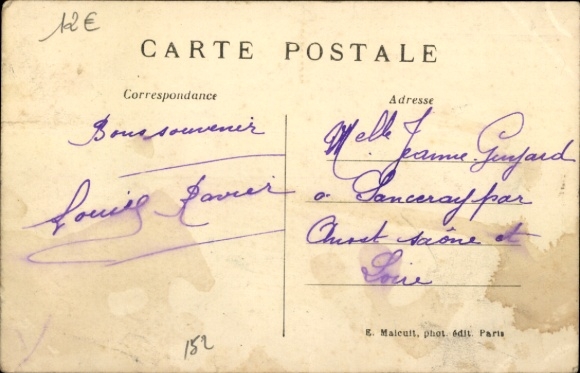 12€
CARTE POSTALE
Correspondance
Adresse
Bons souvenir
Louise Ravier
Melle Jeanne Guyard
a Sanceray par
Anost saône et
Loire
E. Malcuit, phot. édit. Paris
152